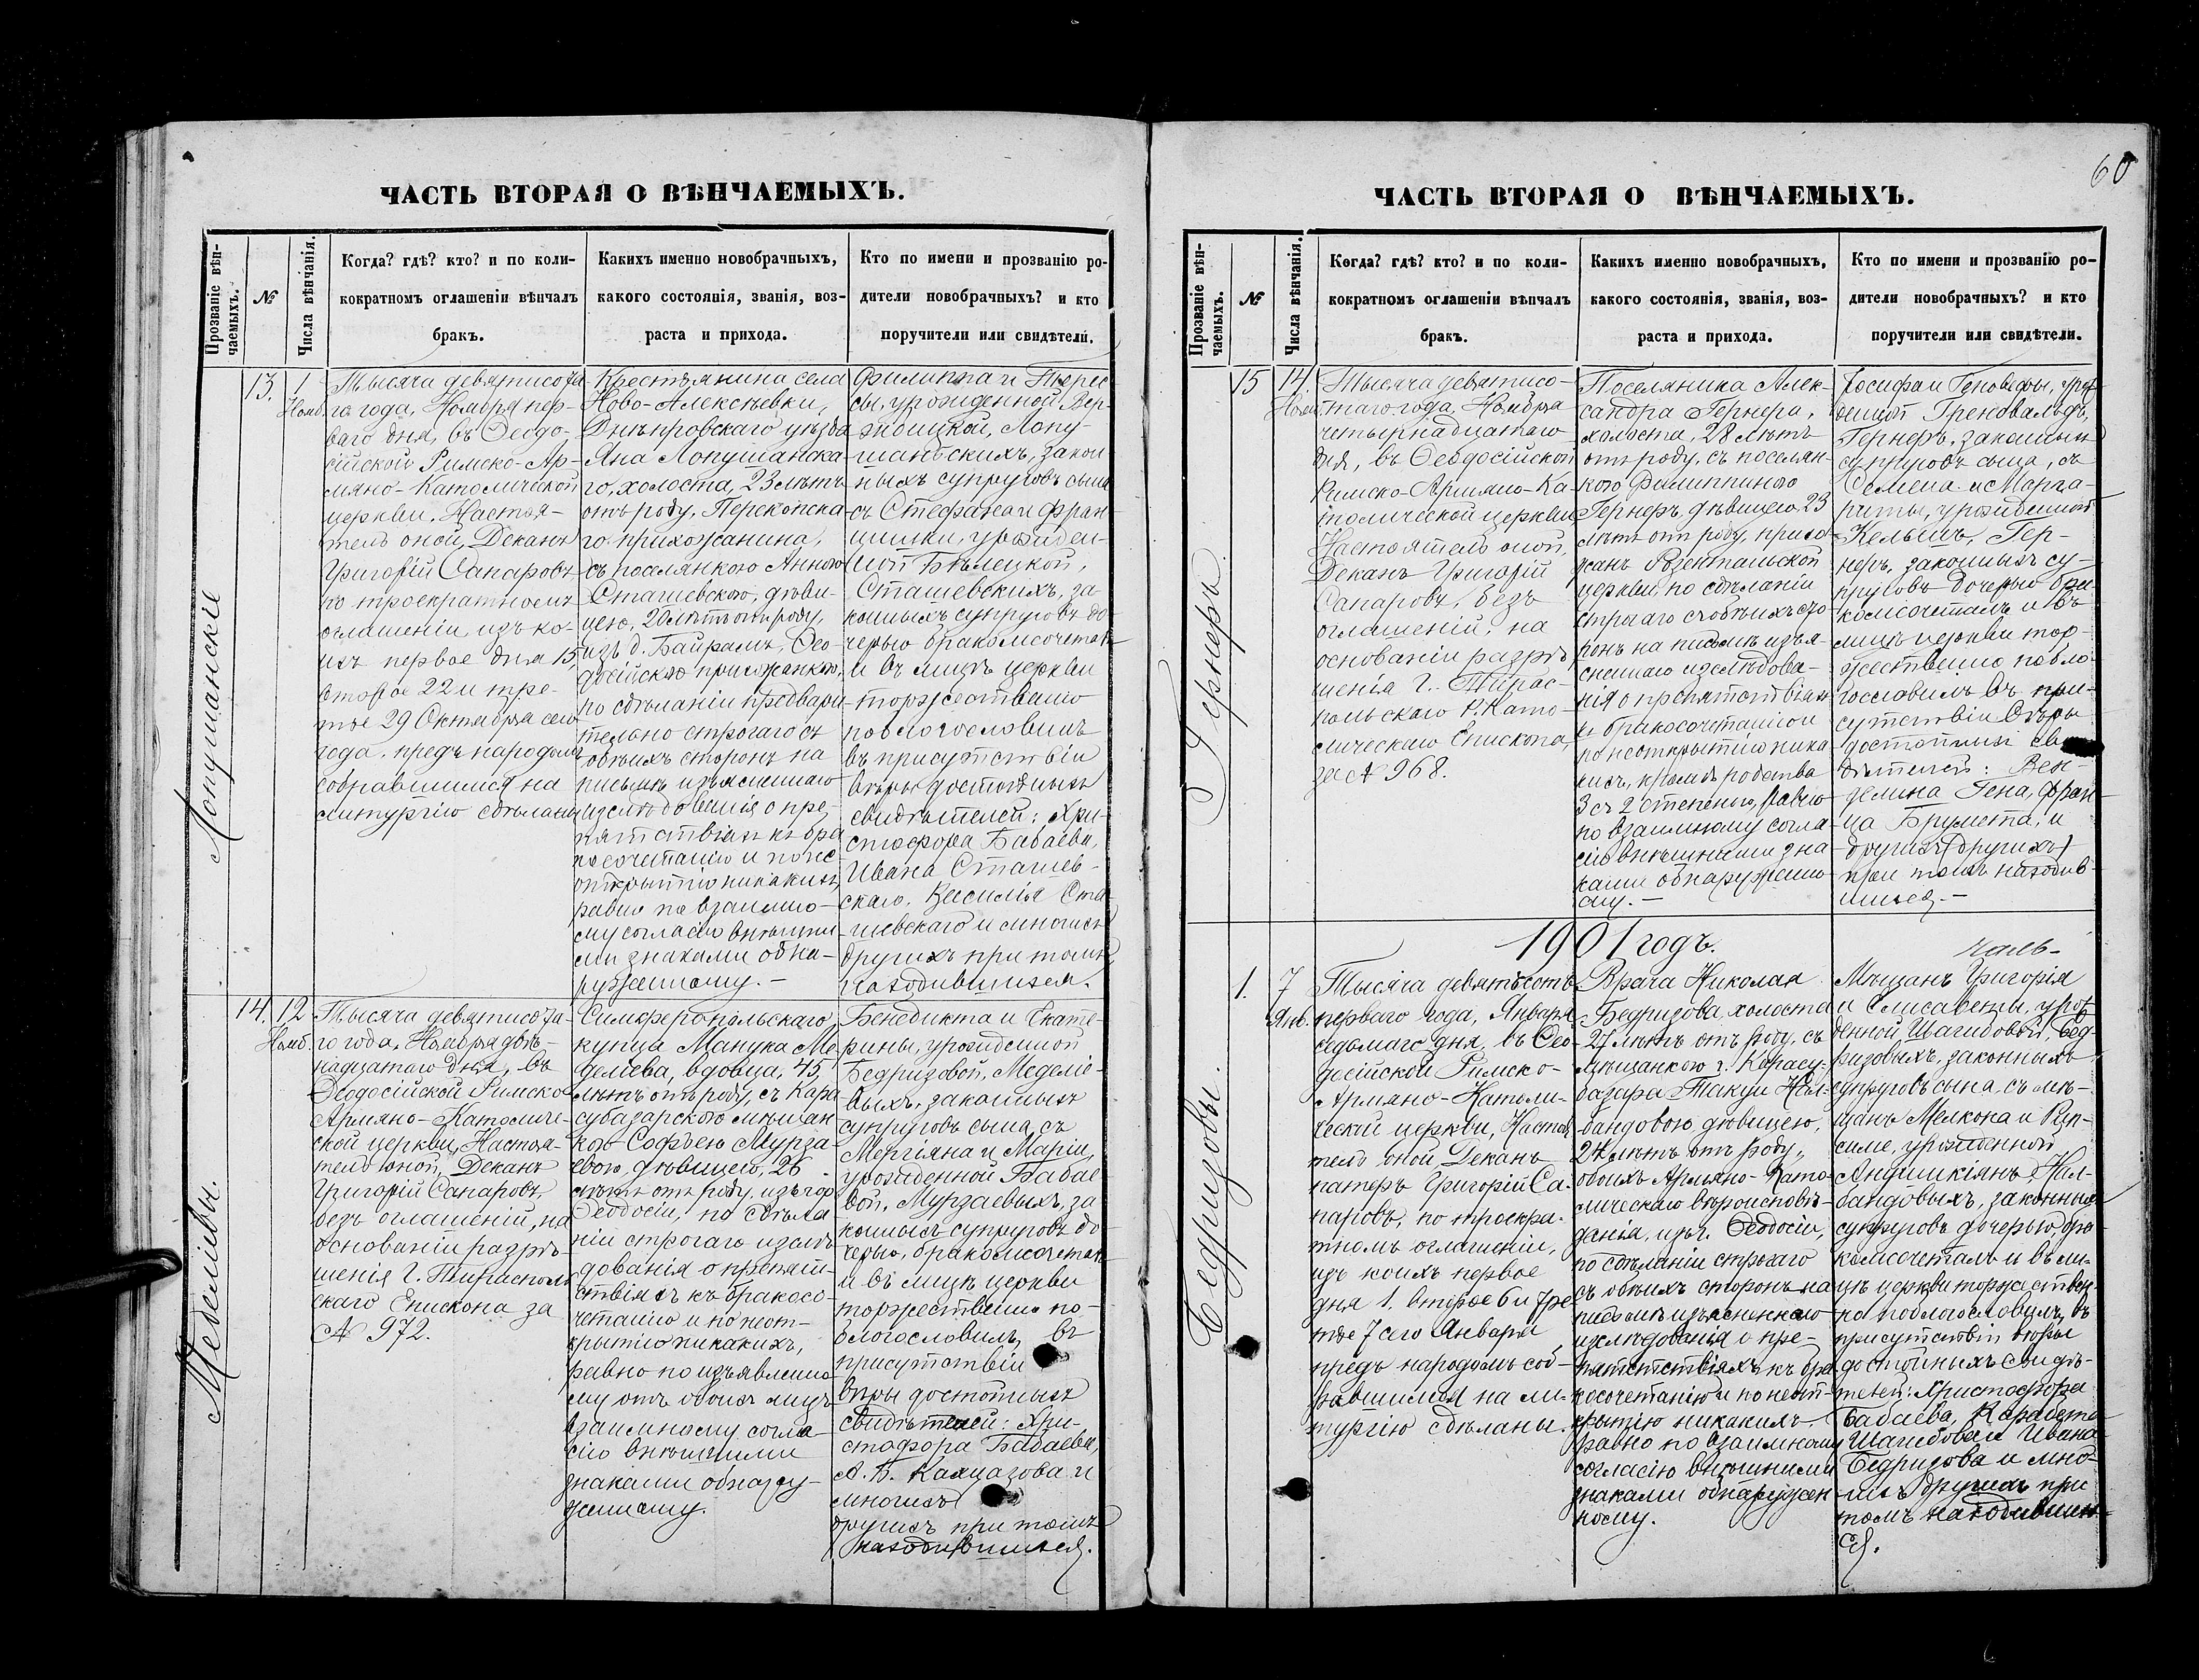 ЧАСТЬ ВТОРАЯ О ВѢНЧАЕМЫХЪ.
Прозваніе вѣн-
чаемыхъ.
№
Числа вѣнчанія.
Когда? гдѣ? кто? и по коли-
кократномъ оглашеніи вѣнчалъ
бракъ.
Какихъ именно новобрачныхъ,
какого состоянія, званія, воз-
раста и прихода.
Кто по имени и прозванію ро-
дители новобрачныхъ? и кто
поручители или свидѣтели.
Лопушанскіе
13.
1
Нояб.
Тысяча девятисота-
го года, Ноября пер-
ваго дня, въ Ѳеодо-
сійской Римско-Ар-
мяно-Католической
церкви. Настоя-
тель оной, Деканъ
Григорій Сапаровъ
по троекратномъ
оглашеніи изъ ко-
ихъ первое дня 15,
второе 22 и тре-
тье 29 Октября сего
года, предъ народомъ
собравшимся на
литургію сдѣланы
Крестьянина села
Ново-Алексѣевки,
Днѣпровскаго уѣзда
Яна Лопушанска-
го, холоста, 23 лѣтъ
отъ роду, Перекопска-
го прихожанина,
съ поселянкою Анною
Сташевскою, дѣви-
цею, 20 лѣтъ отъ роду,
изъ д. Байрамъ, Ѳео-
досійскою прихожанкою,
по сдѣланіи предвари-
тельно строгаго съ
обѣихъ сторонъ на
письмѣ изъясненнаго
изслѣдованія о пре-
пятствіяхъ къ бра-
косочетанію и по не-
открытію никакихъ,
равно по взаимно-
му согласію внѣшни-
ми знаками обна-
руженному.-
Филиппа и Терес-
сы, урожденной Вер-
Лопу-
шанскихъ, закон-
ныхъ супруговъ сына
съ Стефана и Фран-
цишки, урожден-
ной Бѣлецкой,
Сташевскихъ, за-
конныхъ супруговъ до-
черью бракомсочеталъ
и въ лицѣ церкви
торжественно
поблагословилъ
въ присутствіи
вѣры достойныхъ
свидѣтелей: Хри-
стофора Бабаева,
Ивана Сташев-
скаго, Василія Ста-
шевскаго и многихъ
другихъ при томъ
находившихся.
Меделіевы.
14.
12
Нояб.
Тысяча девятисота-
го года, Ноября двѣ-
надцатаго дня, въ
Ѳеодосійской Римско-
Армяно-Католиче-
ской церкви, Настоя-
тель оной, Деканъ
Григорій Сапаровъ,
безъ оглашеній, на
основаніи разрѣ-
шенія Г. Тирасполь-
скаго Епископа за
№ 972.
Симферопольскаго
купца Манука Ме-
деліева, вдовца, 45
лѣтъ отъ роду, съ Кара-
субазарскою мѣщан-
кою Софьею Мурза-
евою, дѣвицею, 26
лѣтъ отъ роду, изъ гор.
Ѳеодосіи, по сдѣла-
ніи строгаго изслѣ-
дованія о препят-
ствіяхъ къ бракосо-
четанію и по неот-
крытію никакихъ,
равно по изъявленно-
му отъ обоихъ лицъ
взаимному согла-
сію внѣшними
знаками обнару-
женному.
Бенедикта и Екате-
рины, урожденной
Бедризовой, Меделіе-
выхъ, законныхъ
супруговъ сына, съ
Мергіяна и Маріи,
урожденной Бабае-
вой, Мурзаевыхъ, за-
конныхъ супруговъ до-
черью, бракомсочеталъ
и въ лицѣ церкви
торжественно по-
благословилъ, въ
присутствіи
вѣры достойныхъ
свидѣтелей: Хри-
стофора Бабаева,
А. Б. Калцазова и
многихъ
другихъ при томъ
находившихся.
60
ЧАСТЬ ВТОРАЯ О ВѢНЧАЕМЫХЪ.
Прозваніе вѣн-
чаемыхъ.
№
Числа вѣнчанія.
Когда? гдѣ? кто? и по коли-
кократномъ оглашеніи вѣнчалъ
бракъ.
Какихъ именно новобрачныхъ,
какого состоянія, званія, воз-
раста и прихода.
Кто по имени и прозванію ро-
дители новобрачныхъ? и кто
поручители или свидѣтели.
Гернеръ
15
14.
Нояб.
Тысяча девятисо-
таго года, Ноября
четырнадцатаго
дня, въ Ѳеодосійской
Римско-Армяно-Ка-
толической церкви
Настоятель оной,
Деканъ Григорій
Сапаровъ, безъ
оглашеній, на
основаніи разрѣ-
шенія Г. Тирас-
польскаго Р. Като-
лическаго Епископа,
за № 968.
Поселянина Алек-
сандра Гернера,
холоста, 28 лѣтъ
отъ роду, съ поселян-
кою Филиппиною
Гернеръ, дѣвицею, 23
лѣтъ отъ роду, прихо-
жанъ Розентальской
церкви, по сдѣланіи
строгаго съ обѣихъ сто-
ронъ на письмѣ изъя-
сненнаго изслѣдова-
нія о препятствіяхъ
къ бракосочетанію и
по неоткрытію ника-
кихъ, кромѣ родства
3 съ 2 степеного, равно
по взаимному согла-
сію внѣшними зна-
ками обнаруженно-
му.-
Іосифа и Геновефы, урож-
денной Гренвальдъ,
Гернеръ, законныхъ
супруговъ сына, съ
Семена и Марга-
риты, урожденной
Кельшъ, Гер-
неръ, законныхъ су-
пруговъ дочерью бра-
комсочеталъ и въ
лицѣ церкви тор-
жественно побла-
гословилъ въ при-
сутствіи вѣры
достойныхъ сви-
дѣтелей: Вен-
делина Гена, Фран-
ца Брумета, и
другихъ (другихъ)
при томъ находив-
шихся.-
1901 годъ.
Бедризовы.
1.
7
Янв.
Тысяча девятьсотъ
перваго года, Января
седьмаго дня, въ Ѳео-
досійской Римско-
Армяно-Католи-
ческой церкви, Настоя-
тель оной Деканъ
патеръ Григорій Са-
паровъ, по троекра-
тномъ оглашеніи,
изъ коихъ первое
дня 1. второе 6 и тре-
тье 7 сего Января
предъ народомъ соб-
равшимся на ли-
тургію сдѣланы.
Врача Николая
Бедризова, холоста
27 лѣтъ отъ роду, съ
мѣщанкою г. Карасу-
базара Такуи Нал-
бандовою, дѣвицею,
24 лѣтъ отъ роду,
обоихъ Армяно-Като-
лическаго вѣроисповѣ-
данія, изъ г. Ѳеодосіи,
по сдѣланіи строгаго
съ обѣихъ сторонъ на
письмѣ изъясненнаго
изслѣдованія о пре-
пятствіяхъ къ бра-
косочетанію и по неот-
крытію никакихъ
равно по взаимному
согласію внѣшними
знаками обнаружен-
ному.
Мѣщанъ Григорія
и Елисаветы, урож-
денной Шагидовой, Бед-
ризовыхъ, законныхъ
супруговъ сына, съ мѣ-
щанъ Мелкона и Рип-
симе, урожденной
Андишкіянъ, Нал-
бандовыхъ, законныхъ
супруговъ дочерью, бра-
комсочеталъ и въ ли-
цѣ церкви торжествен-
но поблагословилъ, въ
присутствіи вѣры
достойныхъ свидѣ-
телей: Христофора
Бабаева, Карабета
Шагидова и Ивана
Бедризова и мно-
гихъ другихъ при
томъ находивших-
ся.